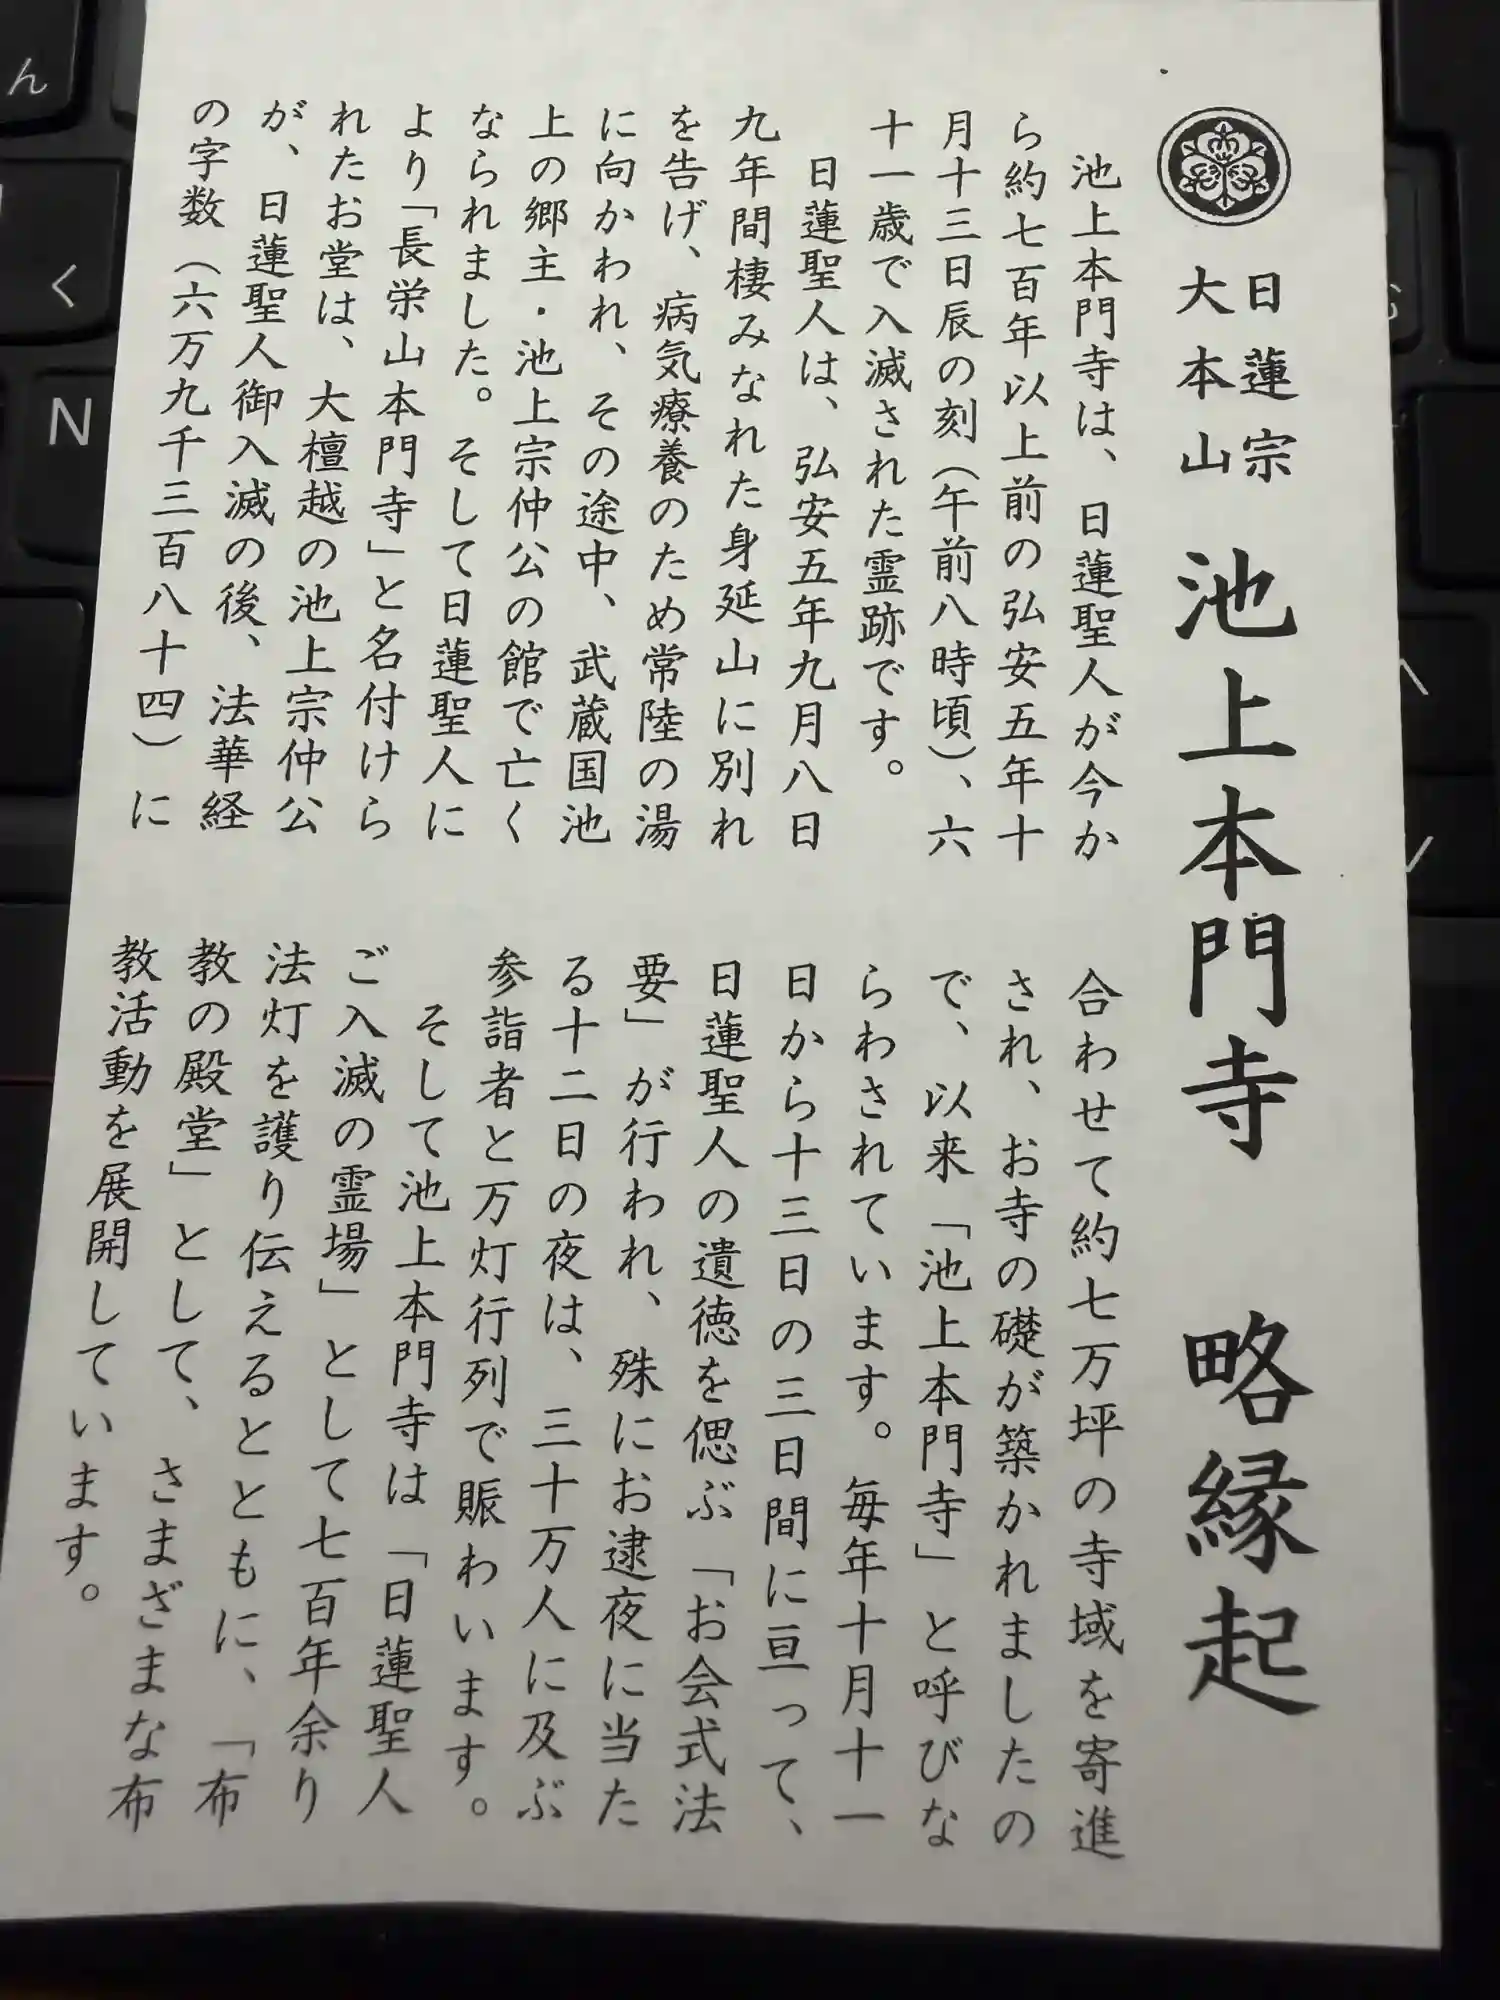 日蓮宗
大本山
池上本門寺 略縁起
池上本門寺は、日蓮聖人が今か
ら約七百年以上前の弘安五年十
月十三日辰の刻(午前八時頃)、六
十一歳で入滅された霊跡です。
日蓮聖人は、弘安五年九月八日
九年間棲みなれた身延山に別れ
を告げ、病気療養のため常陸の湯
に向かわれ、その途中、武蔵国池
上の郷主・池上宗仲公の館で亡く
なられました。そして日蓮聖人に
より「長栄山本門寺」と名付けら
れたお堂は、大檀越の池上宗仲公
が、日蓮聖人御入滅の後、法華経
の字数(六万九千三百八十四)に
合わせて約七万坪の寺域を寄進
され、お寺の礎が築かれましたの
で、以来「池上本門寺」と呼びな
らわされています。毎年十月十一
日から十三日の三日間に亘って、
日蓮聖人の遺徳を偲ぶ「お会式法
要」が行われ、殊にお逮夜に当た
る十二日の夜は、三十万人に及ぶ
参詣者と万灯行列で賑わいます。
そして池上本門寺は「日蓮聖人
ご入滅の霊場」として七百年余り
法灯を護り伝えるとともに、「布
教の殿堂」として、さまざまな布
教活動を展開しています。
ん
く
N
む
へ